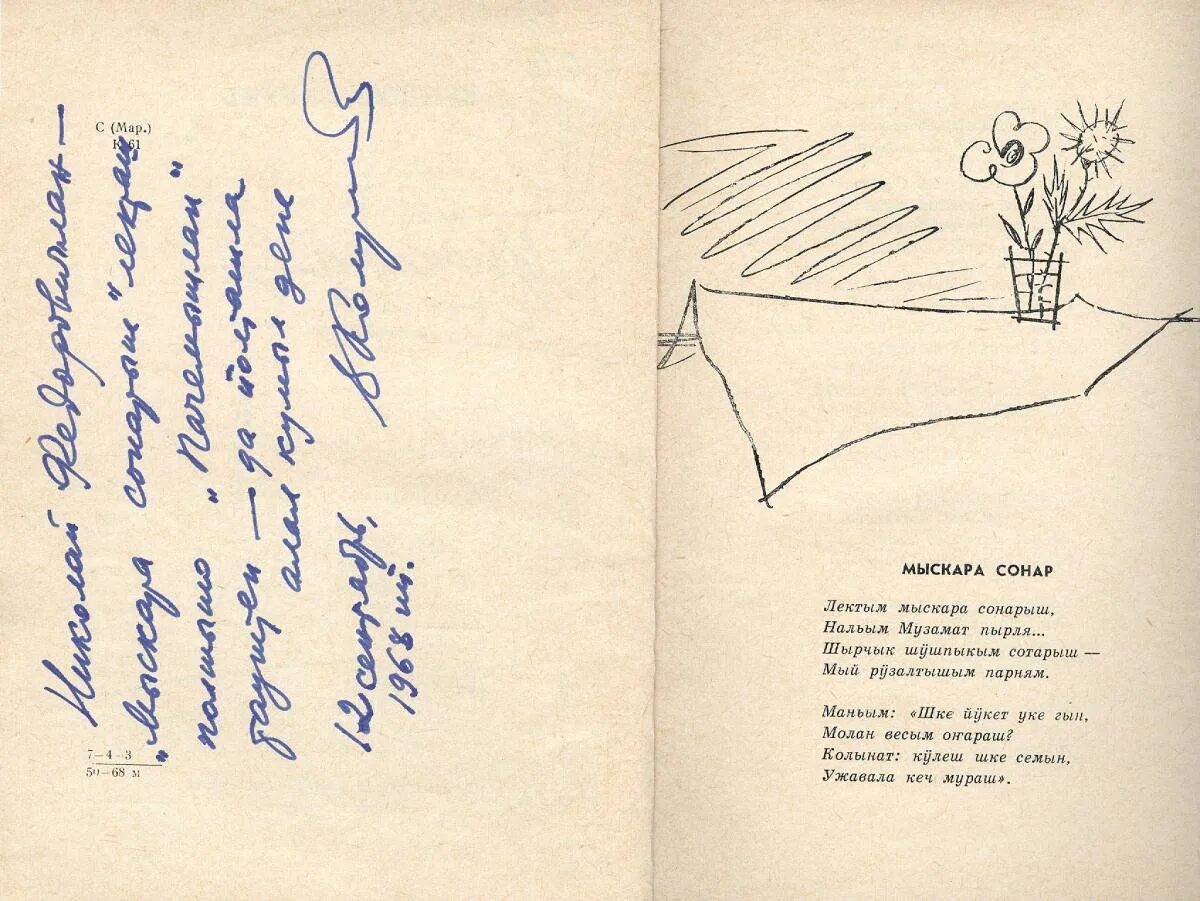 С (Мар.)
К 61
Николай Федоровичлан —
„Мыскара сонарыш" лекраш
полышо „Пачемышлан"
тауштен — да йолташла
алал кумыл дене
В Колумб
12 сентябрь,
1968 ий.
7—4—3
50—68 м
МЫСКАРА СОНАР
Лектым мыскара сонарыш,
Нальым Музамат пырля...
Шырчык шӱшпыкым сотарыш —
Мый рӱзалтышым парням.
Маньым: «Шке йӱкет уке гын,
Молан весым оҥараш?
Колынат: кӱлеш шке семын,
Ужавала кеч мураш».